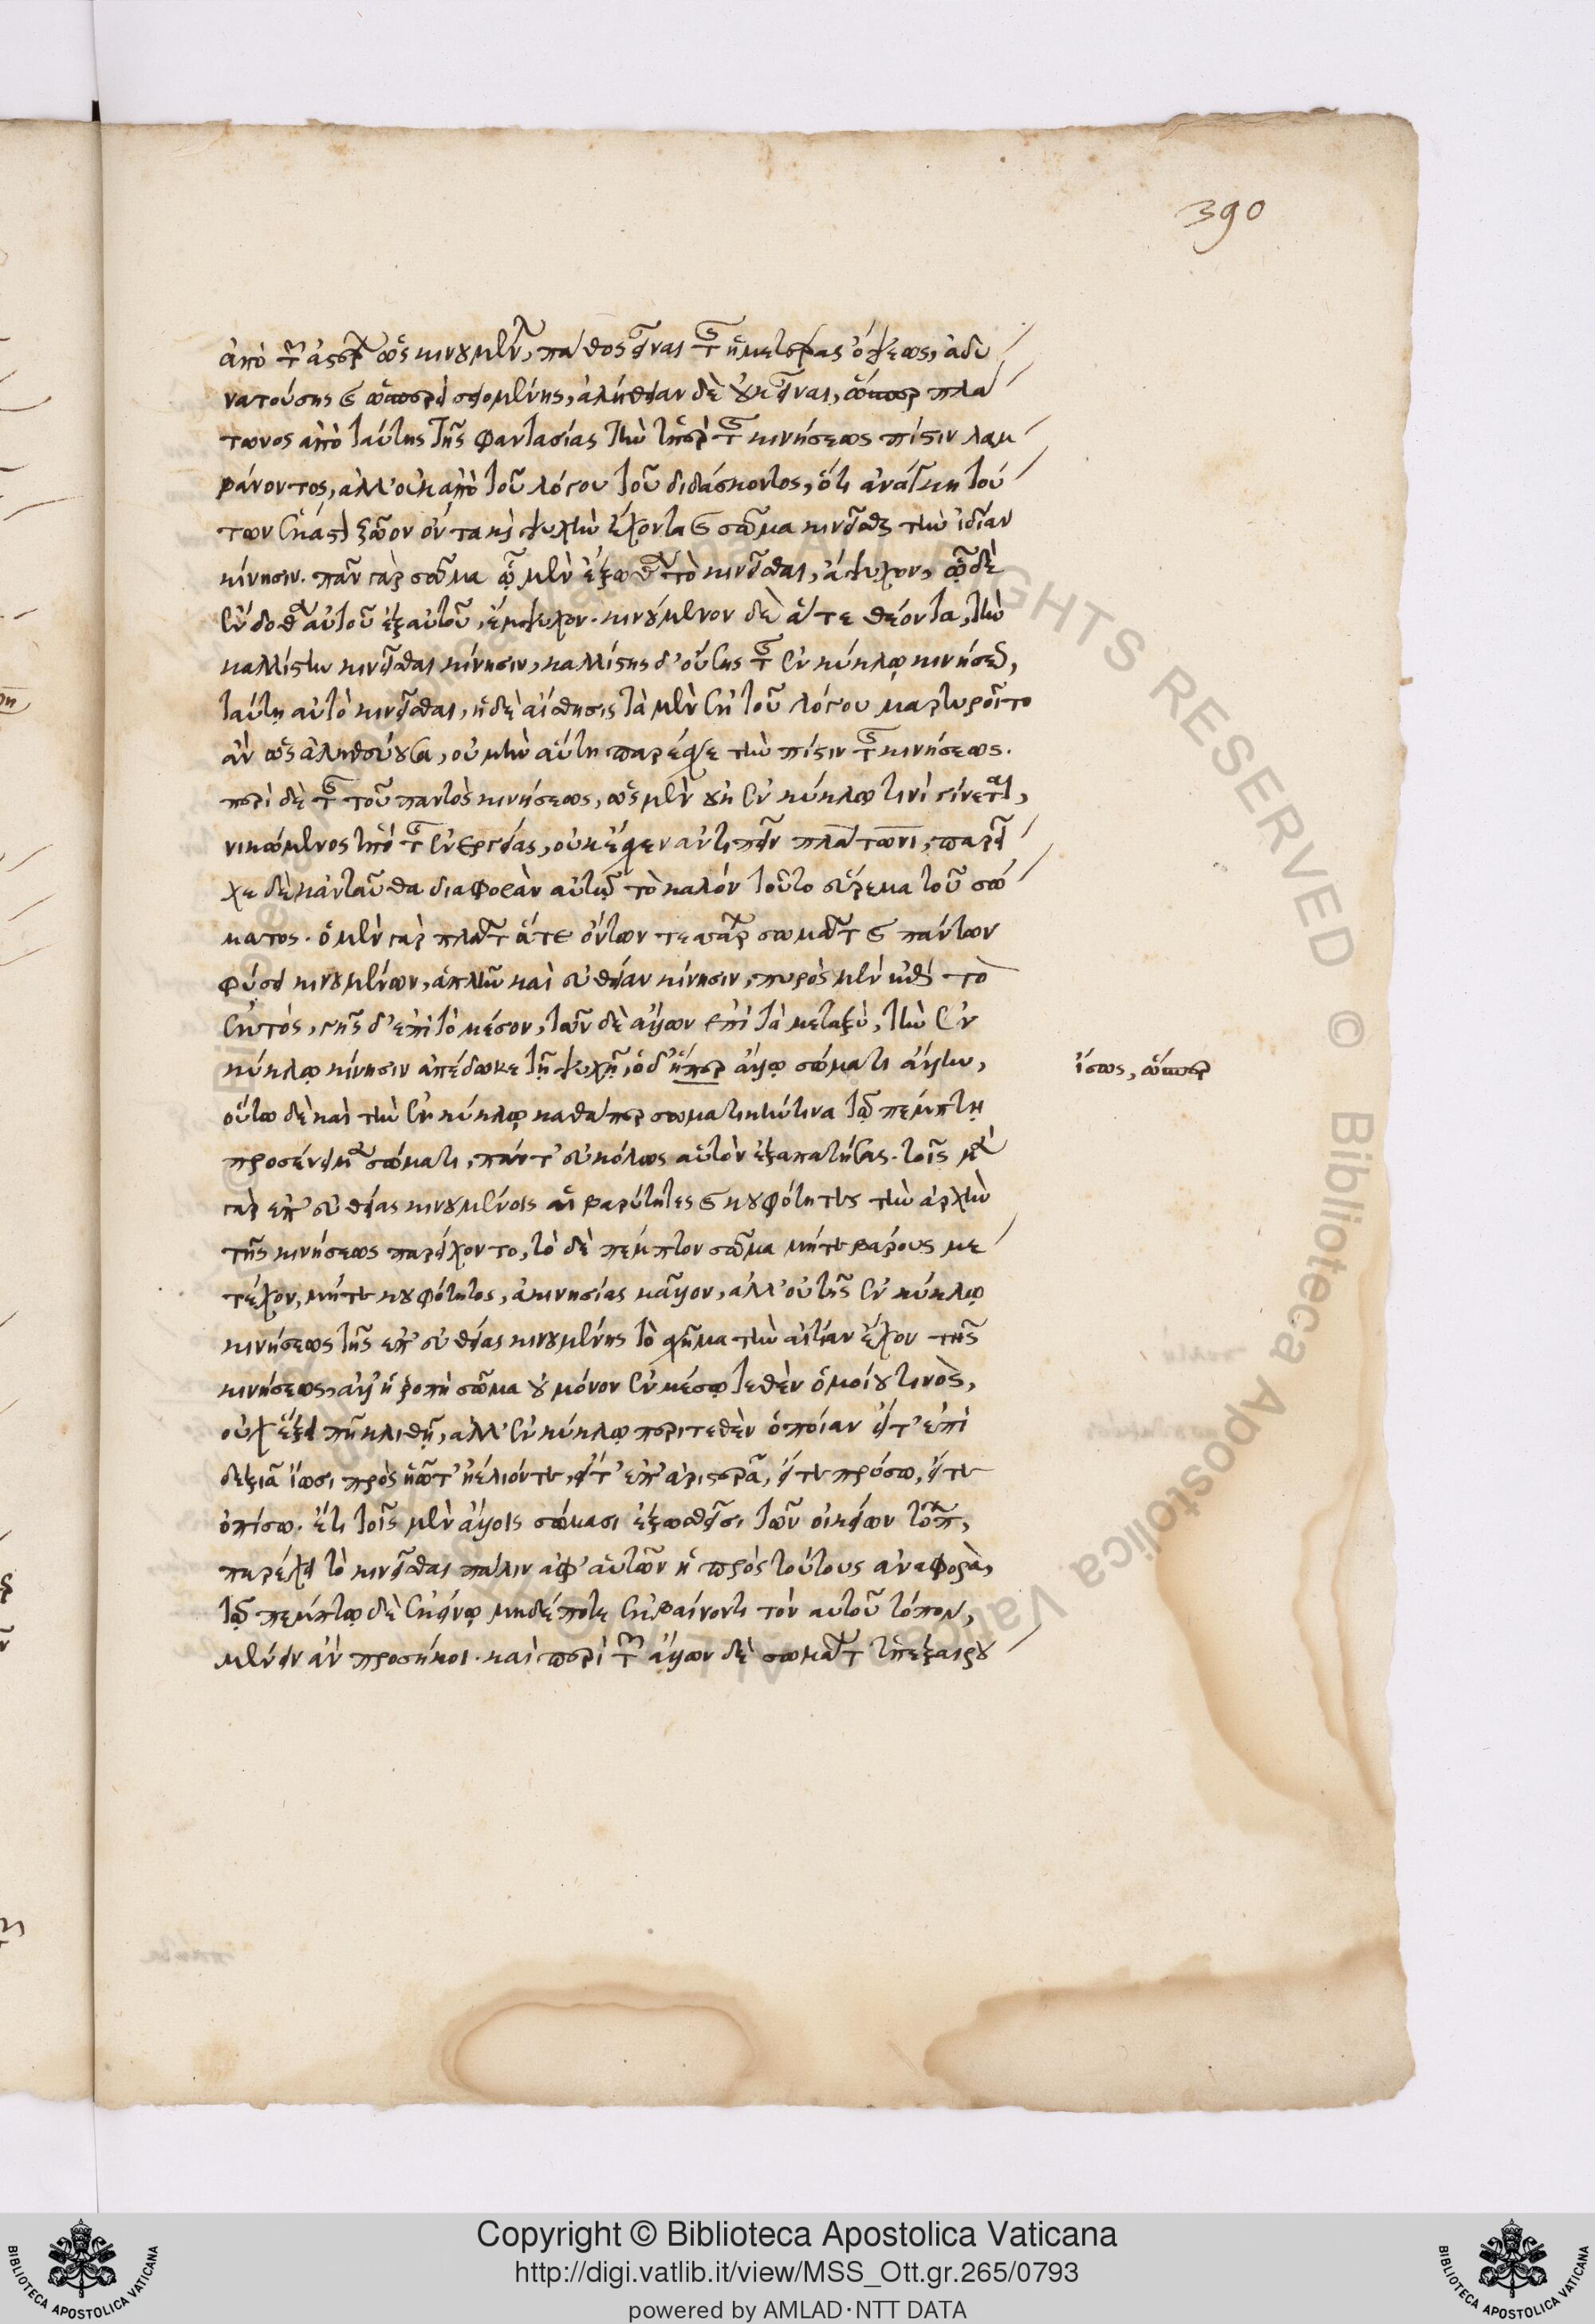 390
ἀπὸ τῶν ἀστέρων ὡς κινουμένων, πάθος εἶναι τῆς ἡμετέρας ὄψεως, ἀδυ
νατούσης καὶ ὥσπερ σειομένης, ἀλήθειαν δὲ οὐκ εἶναι, ὥσπερ πλά
τωνος ἀπὸ ταύτης τῆς φαντασίας τὴν ὑπὲρ τῆς κινήσεως πίστιν λαμ
βάνοντος, ἀλλ' οὐκ ἀπὸ τοῦ λόγου τοῦ διδάσκοντος, ὅτι ἀνάγκη τού
των ἕκαστον ζῷον ὄντα καὶ ψυχὴν ἔχοντα καὶ σῶμα κινεῖσθαι τὴν ἰδίαν
κίνησιν. πᾶν γὰρ σῶμα ᾧ μὲν ἔξωθεν τὸ κινεῖσθαι, ἄψυχον, ᾧ δὲ
ἔνδοθεν αὐτοῦ ἐξ αὑτοῦ, ἔμψυχον. κινούμενον δὲ ἅτε θέοντα, τὴν
καλλίστην κινεῖσθαι κίνησιν, καλλίστης δ' οὔσης τῆς ἐν κύκλῳ κινήσεως,
ταύτῃ αὐτὸ κινεῖσθαι, ἡ δὲ αἴσθησις τὰ μὲν ἐκ τοῦ λόγου μαρτυροῖτο
ἂν ὡς ἀληθεύουσα, οὐ μὴν αὕτη παρέσχε τὴν πίστιν τῆς κινήσεως.
περὶ δὲ τῆς τοῦ παντὸς κινήσεως, ὡς μὲν οὐκ ἐν κύκλῳ τινὶ γίνεται,
νικώμενος ὑπὸ τῆς ἐνεργείας, οὐκ ἔσχεν ἀντειπεῖν πλάτωνι, παρεῖ
χε δὲ κἀνταῦθα διαφορὰν αὐτῷ τὸ καλὸν τοῦτο εὕρεμα τοῦ σώ
ματος. ὁ μὲν γὰρ πλάτων ἅτε ὄντων τεσσάρων σωμάτων καὶ πάντων
φύσει κινουμένων, ἁπλῆν καὶ εὐθεῖαν κίνησιν, πυρὸς μὲν ἐπὶ τὸ
ἐκτός, γῆς δ' ἐπὶ τὸ μέσον, τῶν δὲ ἄλλων ἐπὶ τὰ μεταξύ, τὴν ἐν
κύκλῳ κίνησιν ἀπέδωκε τῇ ψυχῇ, ὁ δ' ἥπερ ἄλλῳ σώματι ἄλλην,
οὕτω δὲ καὶ τὴν ἐν κύκλῳ καθάπερ σωματικήν τινα τῷ πέμπτῃ
προσένειμεν σώματι, πάντ' εὐκόλως αὑτὸν ἐξαπατήσας. τοῖς μὲν
γὰρ ἐπ' εὐθείας κινουμένοις αἱ βαρύτητες καὶ κουφότητες τὴν ἀρχὴν
τῆς κινήσεως παρείχοντο, τὸ δὲ πέμπτον σῶμα μήτε βάρους με
τέχον, μήτε κουφότητος, ἀκινησίας μᾶλλον, ἀλλ' οὐ τῆς ἐν κύκλῳ
κινήσεως τῆς ἐπ' εὐθείας κινουμένης τὸ σχῆμα τὴν αἰτίαν ἔχον τῆς
κινήσεως, ἀλλ' ἡ ῥοπὴ σῶμα οὐ μόνον ἐν μέσῳ τεθὲν ὁμοίου τινός,
οὐχ ἕξει πῇ κλιθῇ, ἀλλ' ἐν κύκλῳ περιτεθὲν ὁποίαν εἴτ' ἐπὶ
δεξιᾶ ἴωσι πρὸς ἠῶ τ' ἠέλιόν τε, εἴτ' ἐπ' ἀριστερᾶ, εἴτε πρόσω, εἴτε
ὀπίσω. ἔτι τοῖς μὲν ἄλλοις σώμασι ἐξωσθεῖσι τῶν οἰκείων τόπων,
παρέχει τὸ κινεῖσθαι πάλιν ἀφ' αὑτῶν ἡ πρὸς τούτους ἀναφορά,
τῷ πέμπτῳ δὲ ἐκείνῳ μηδέποτε ἐκβαίνοντι τὸν αὑτοῦ τόπον,
μένειν ἂν προσήκοι. καὶ περὶ τῶν ἄλλων δὲ σωμάτων ὑπεξαιρου
ἴσως, ὥσπερ
Copyright © Biblioteca Apostolica Vaticana
http://digi.vatlib.it/view/MSS_Ott.gr.265/0793
powered by AMLAD·NTT DATA